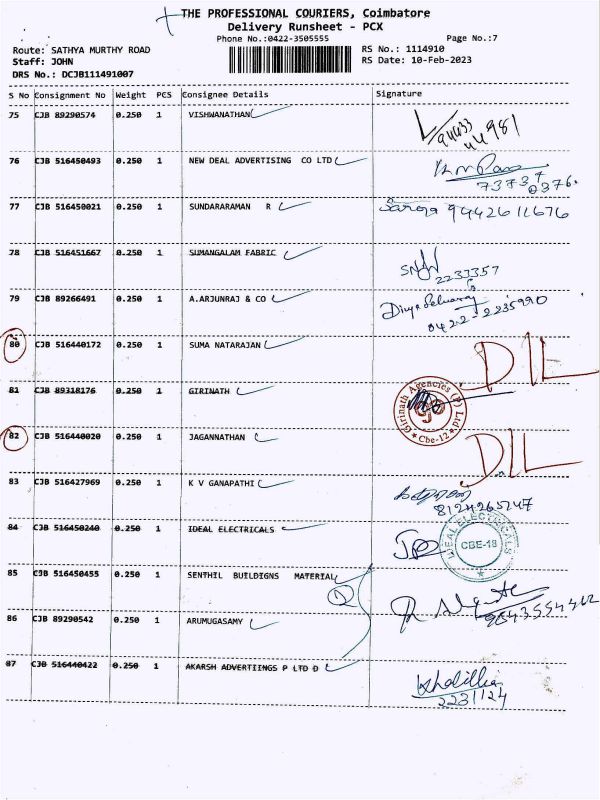 THE PROFESSIONAL COURIERS, Coimbatore
Delivery Runsheet - PCX
Phone No.:0422-3505555
Page No.:7
Route: SATHYA MURTHY ROAD
RS No.: 1114910
Staff: JOHN
RS Date: 10-Feb-2023
DRS No.: DCJB111491007
S No Consignment No Weight PCS Consignee Details Signature
75 CJB 89290574 0.250 1 VISHWANATHAN
76 CJB 516450493 0.250 1 NEW DEAL ADVERTISING CO LTD
77 CJB 516450021 0.250 1 SUNDARARAMAN R Saroja 9442611676
78 CJB 516451667 0.250 1 SUMANGALAM FABRIC 2237357
79 CJB 89266491 0.250 1 A.ARJUNRAJ & CO 0422-2235990
80 CJB 516440172 0.250 1 SUMA NATARAJAN DIL
81 CJB 89318176 0.250 1 GIRINATH Girinath Agencies (P) Ltd Cbe-12
82 CJB 516440020 0.250 1 JAGANNATHAN DIL
83 CJB 516427969 0.250 1 K V GANAPATHI 8124265247
84 CJB 516450240 0.250 1 IDEAL ELECTRICALS IDEAL ELECTRICALS CBE-18
85 CJB 516450455 0.250 1 SENTHIL BUILDIGNS MATERIAL
86 CJB 89290542 0.250 1 ARUMUGASAMY
87 CJB 516440422 0.250 1 AKARSH ADVERTIINGS P LTD D 2231124